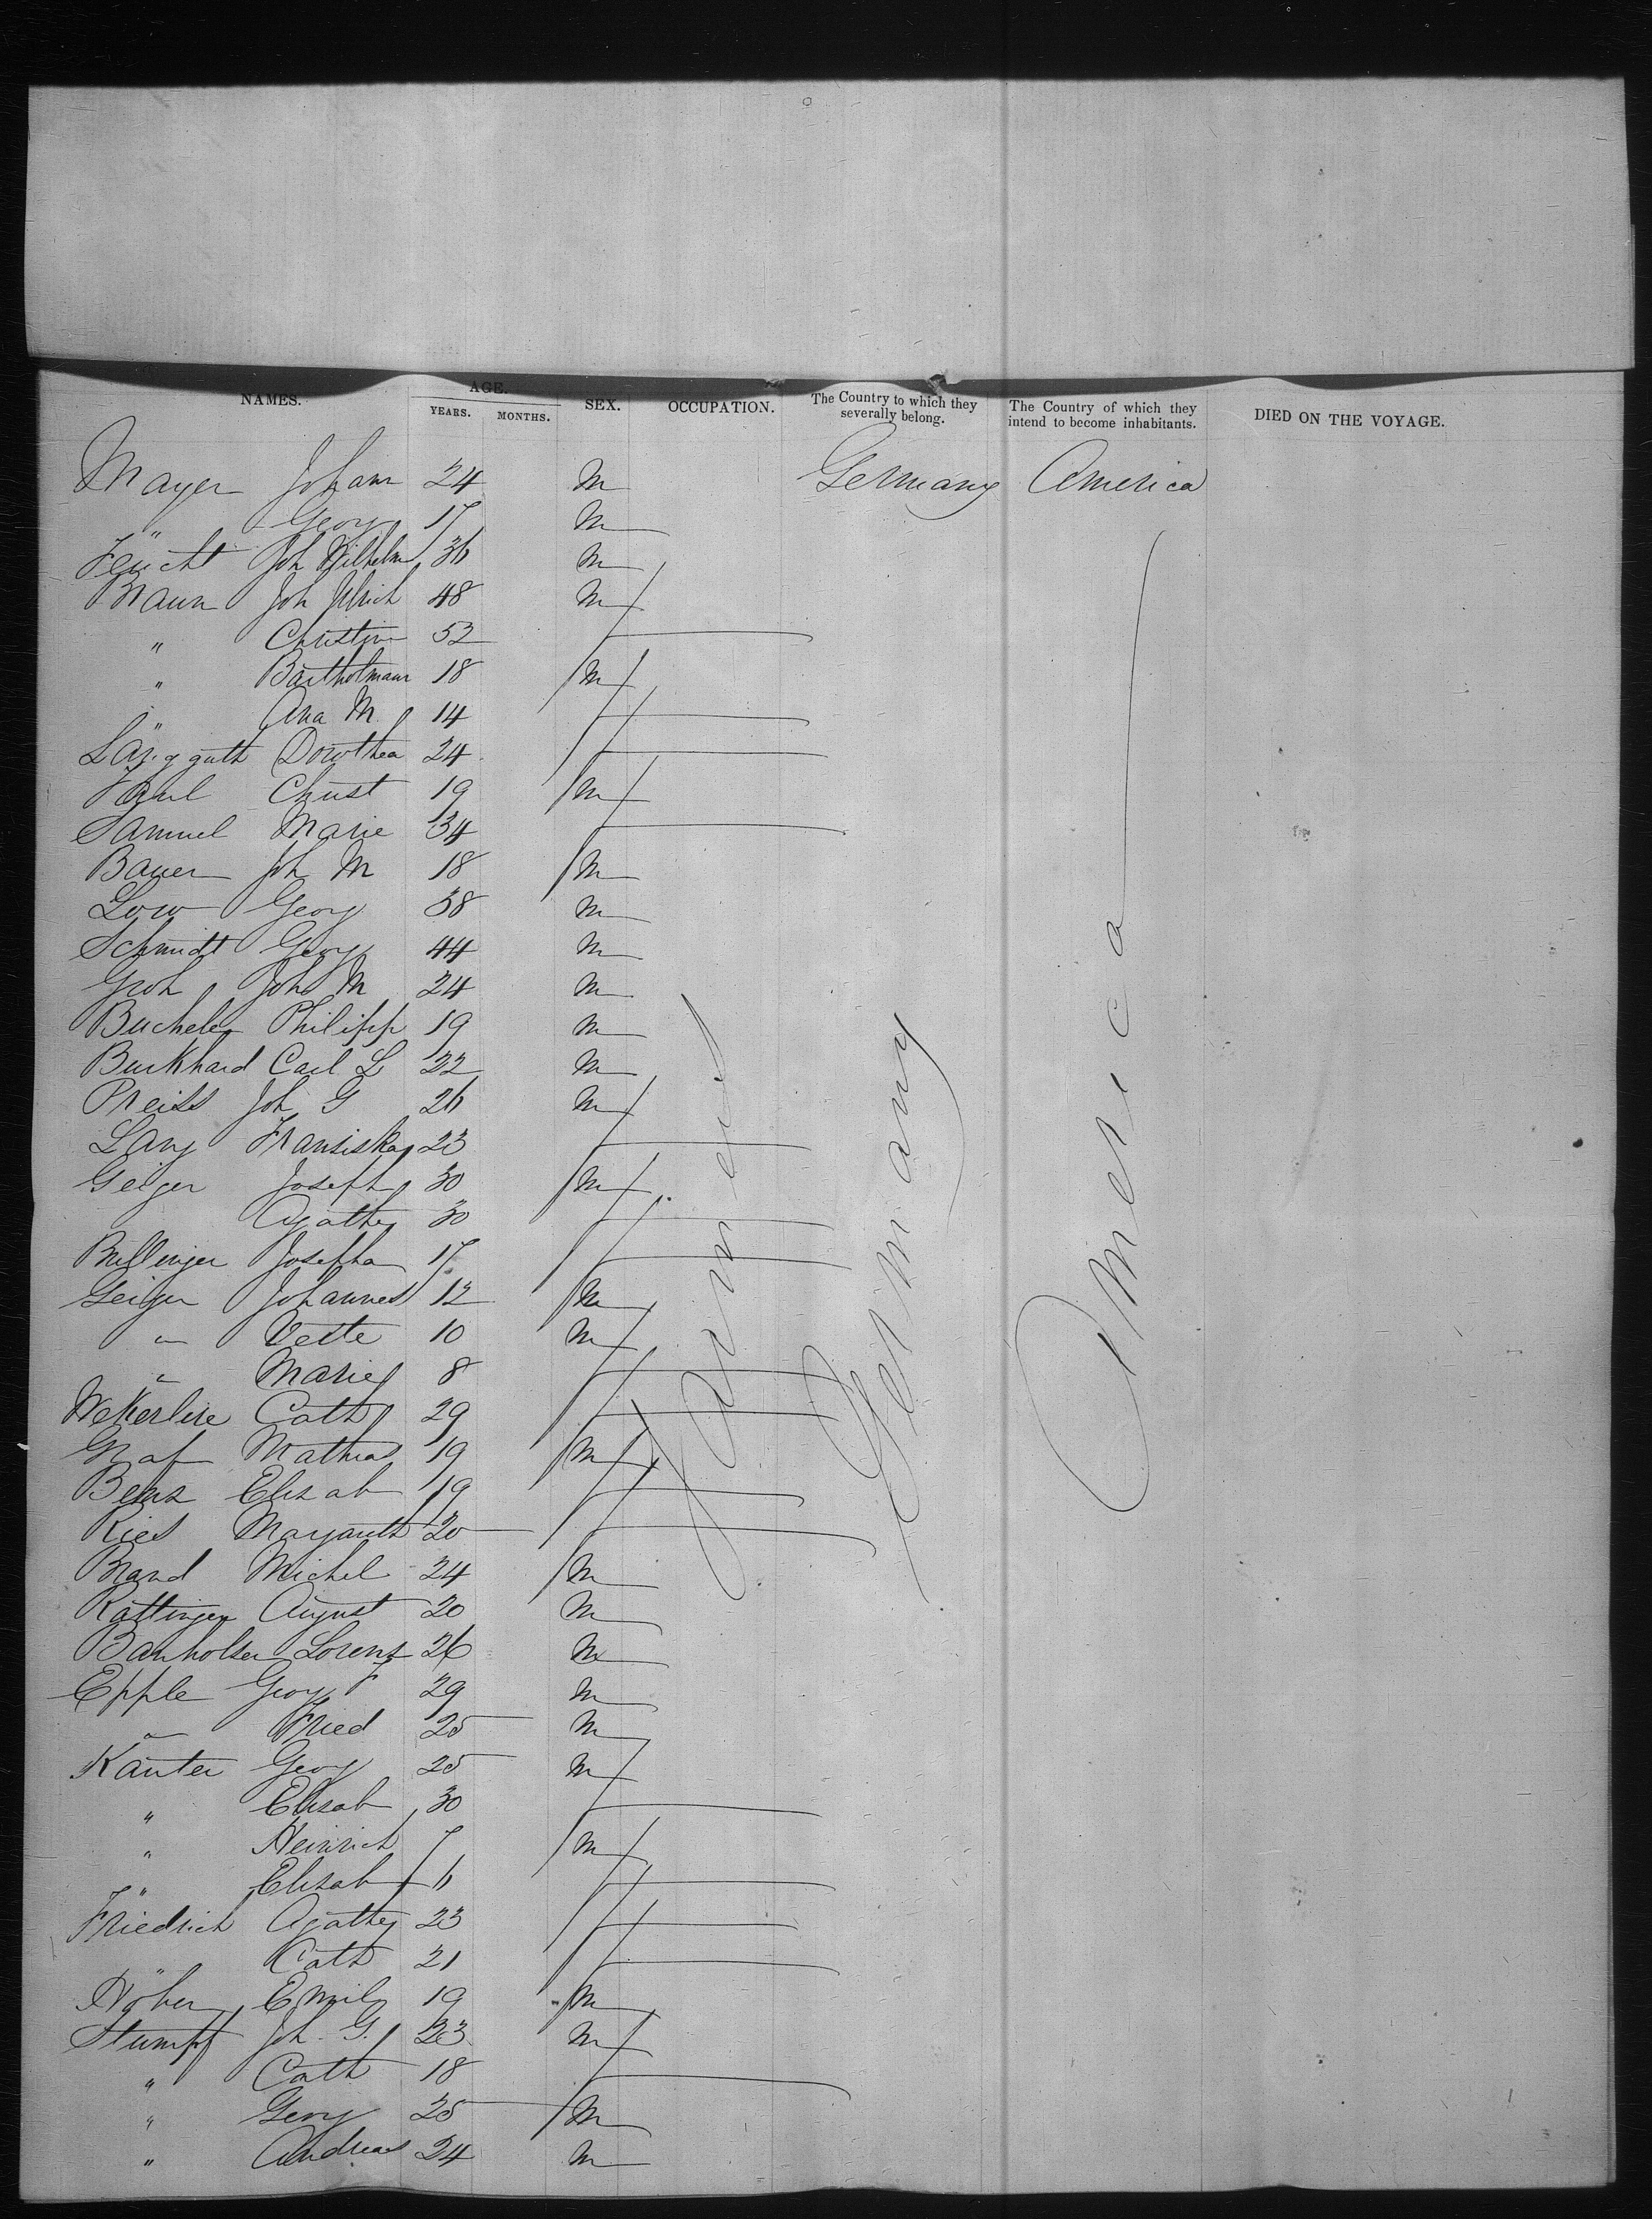 NAMES. AGE. YEARS. MONTHS. SEX. OCCUPATION. The Country to which they severally belong. The Country of which they intend to become inhabitants. DIED ON THE VOYAGE.
Mayer Johann 24 m Germany America
" Georg 17 m
Feucht Joh Wilhelm 36 m
Braun Joh Ulrich 48 m
" Christine 52 f
" Bartholmaus 18 m
" Ana M 14 f
Langguth Dorothea 24 f
Christ 19 m
Samuel Marie 34 f
Bauer Joh M 18 m
Low Georg 38 m
Schmidt Georg 44 m
Groh Joh M 24 m
Bucheler Philipp 19 m
Burkhard Carl L 22 m
Preiss Joh G 26 m
Lang Fransiska 23 f
Geiger Joseph 30 m
Agathe 30 f
Bullinger Josepha 17 f
Geiger Johannes 12 m
" 10 m
" Marie 8 f
Wekerline Cath 29 f
Graf Mathias 19 m
Benz Elisab 19 f
Ries Margareth 20 f
Brand Michel 24 m
Rattinger August 20 m
Banholser Lorenz 26 m
Epple Georg 29 m
" Fried 25 m
Kanter Georg 25 m
" Elisab 30 f
" Heinrich 7 m
" Elisab 6 f
Friedrich Agathe 23 f
" Cath 21 f
Emil 19 m
Stumpf Joh. G. 23 m
" Cath 18 f
" Georg 25 m
" Andreas 24 m
Farmer
Germany
America